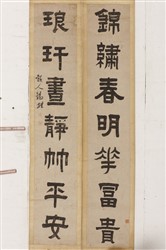 錦繡春明花富貴
琅玕晝靜竹平安